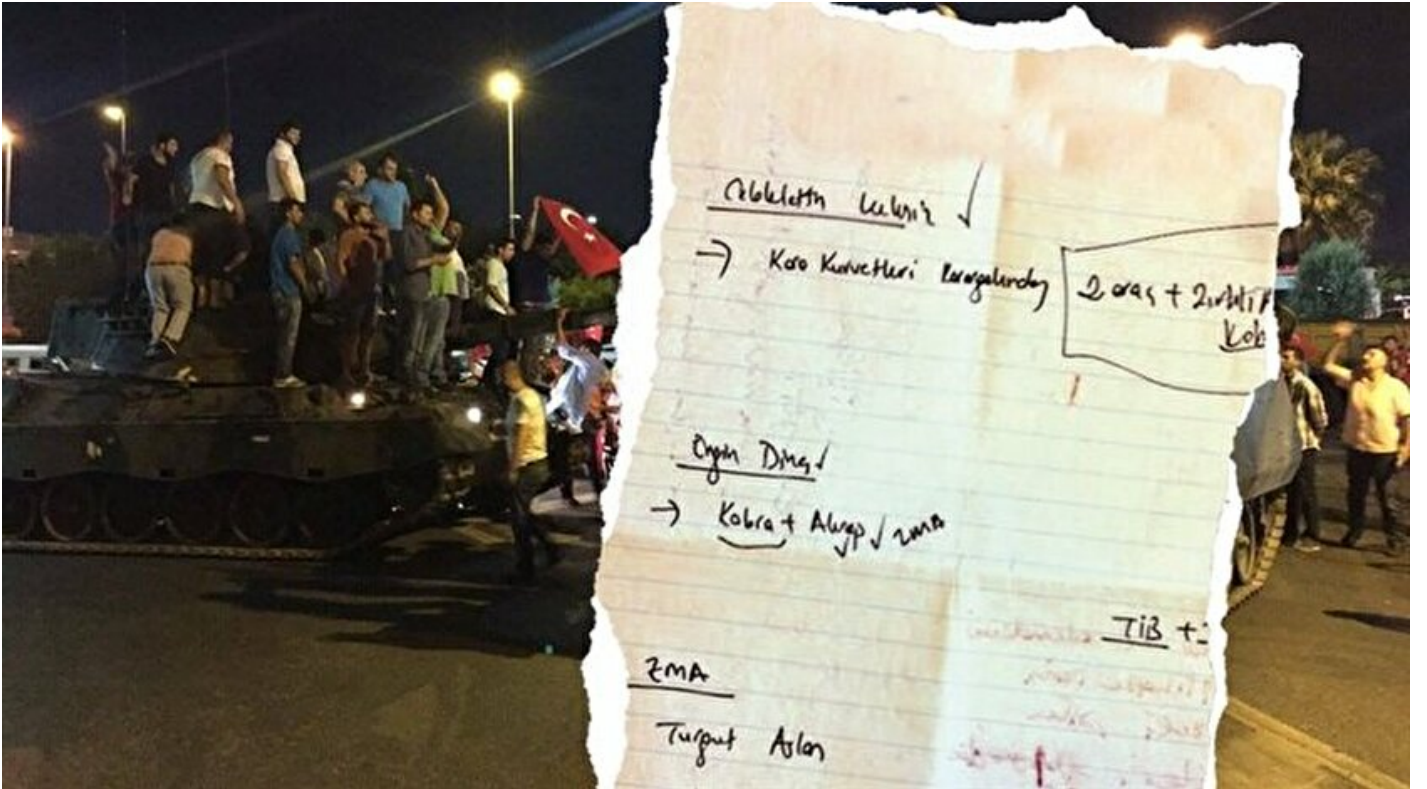 Celalettin Lekesiz ✓
→ Kara Kuvvetleri Karargahından
2 araç + Zırhlı
Kob
Engin Dinç ✓
→ Kobra + Akrep ✓ ZMA
TİB +
ZMA
Turgut Aslan